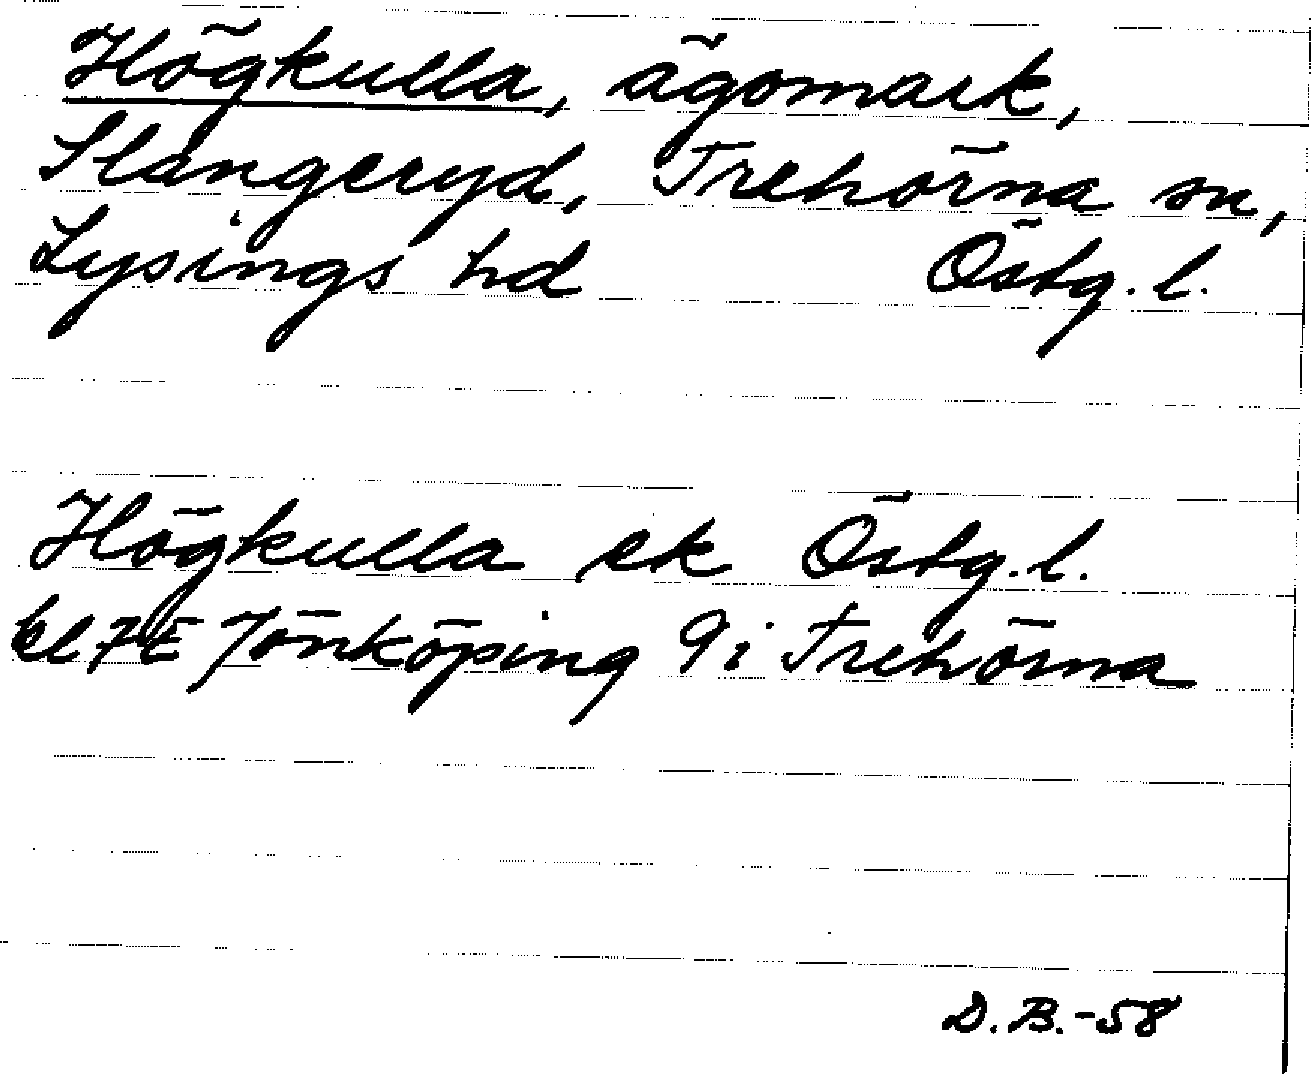 Högkulla, ägomark,
Slangeryd, Trehörna sn,
Lysings hd Östg. l.
Högkulla ek Östg. l.
bl 7E Jönköping 9i Trehörna
D.B.-58